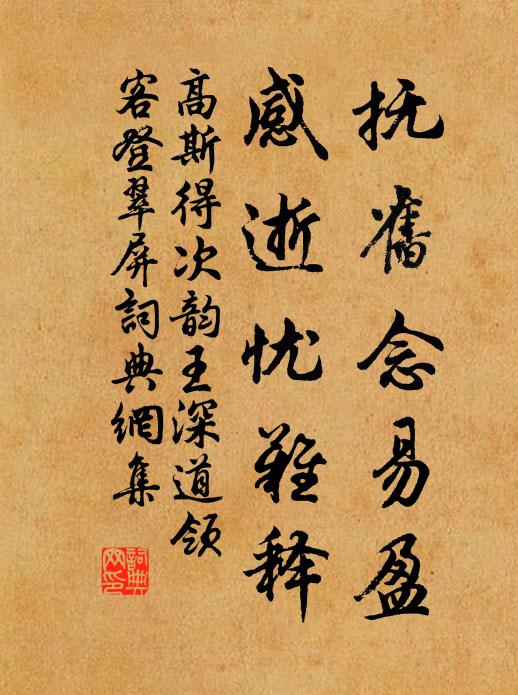 抚旧念易盈
感逝忧难释
高斯得次韵王深道领
客登翠屏詞典網集
詞典
网印